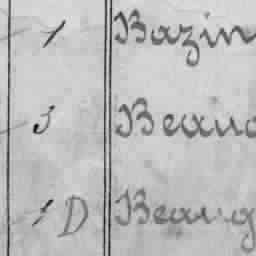 1 Bazin
3 Beauc
1 D Beaug